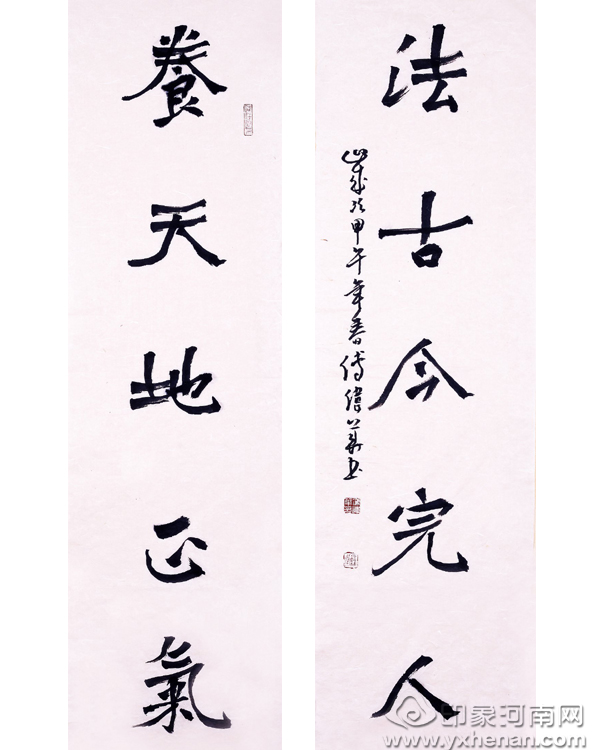 法古今完人
歲次甲午年春傅偉书
養天地正氣
印象河南网
www.yxhenan.com